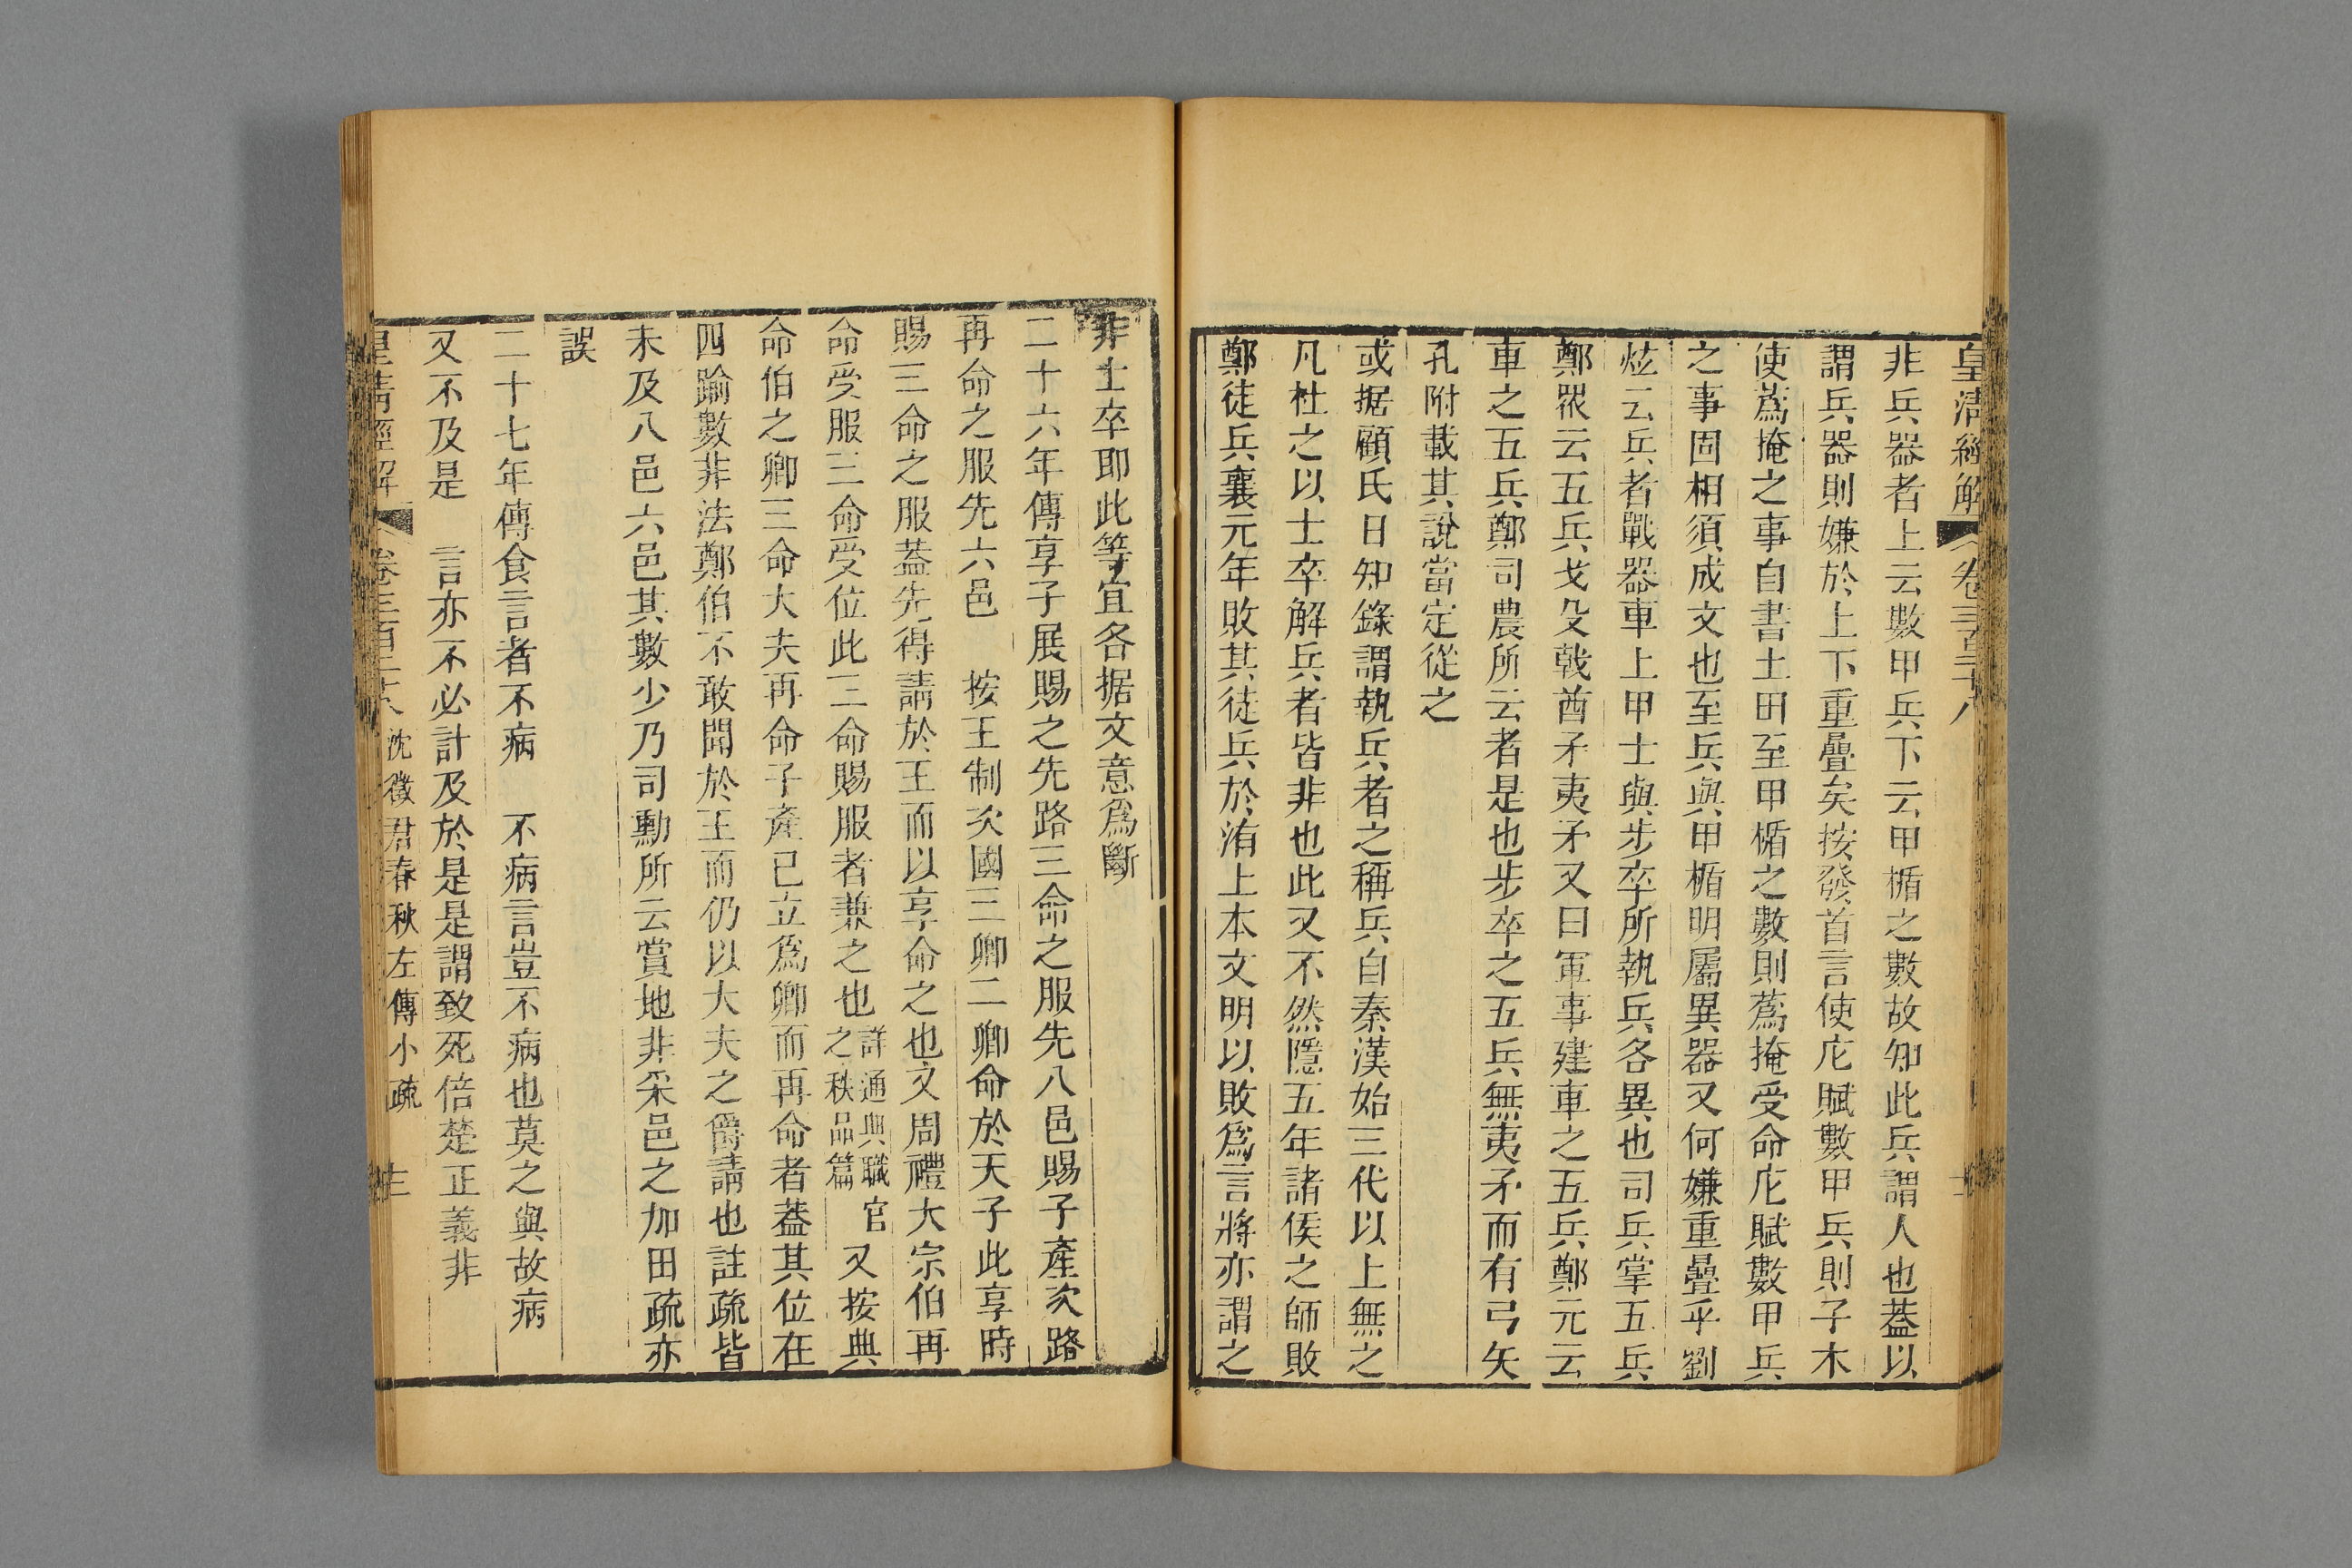 皇清經解 卷三百二十八
非兵器者上云數甲兵下云甲楯之數故知此兵謂人也葢以
謂兵器則嫌於上下重疊矣按發首言使庀賦數甲兵則子木
使蒍掩之事自書土田至甲楯之數則蒍掩受命庀賦數甲兵
之事固相須成文也至兵與甲楯明屬異器又何嫌重疊乎劉
炫云兵者戰器車上甲士與步卒所執兵各異也司兵掌五兵
鄭眾云五兵戈殳戟酋矛夷矛又曰軍事建車之五兵鄭元云
車之五兵鄭司農所云者是也步卒之五兵無夷矛而有弓矢
孔附載其說當定從之
或据顧氏日知錄謂執兵者之稱兵自秦漢始三代以上無之
凡杜之以士卒解兵者皆非也此又不然隱五年諸侯之師敗
鄭徒兵襄元年敗其徒兵於洧上本文明以敗為言將亦謂之
非士卒耶此等宜各据文意為斷
二十六年傳享子展賜之先路三命之服先八邑賜子產次路
再命之服先六邑　按王制次國三卿二卿命於天子此享時
賜三命之服葢先得請於王而以享命之也文周禮大宗伯再
命受服三命受位此三命賜服者兼之也詳通典職官之秩品篇又按典
命伯之卿三命大夫再命子產已立為卿而再命者葢其位在
四踰數非法鄭伯不敢聞於王而仍以大夫之爵請也註疏皆
未及八邑六邑其數少乃司勳所云賞地非采邑之加田疏亦
誤
二十七年傳食言者不病　不病言豈不病也莫之與故病
又不及是　言亦不必計及於是是謂致死倍楚正義非
皇清經解 卷三百二十八 沈徵君春秋左傳小疏